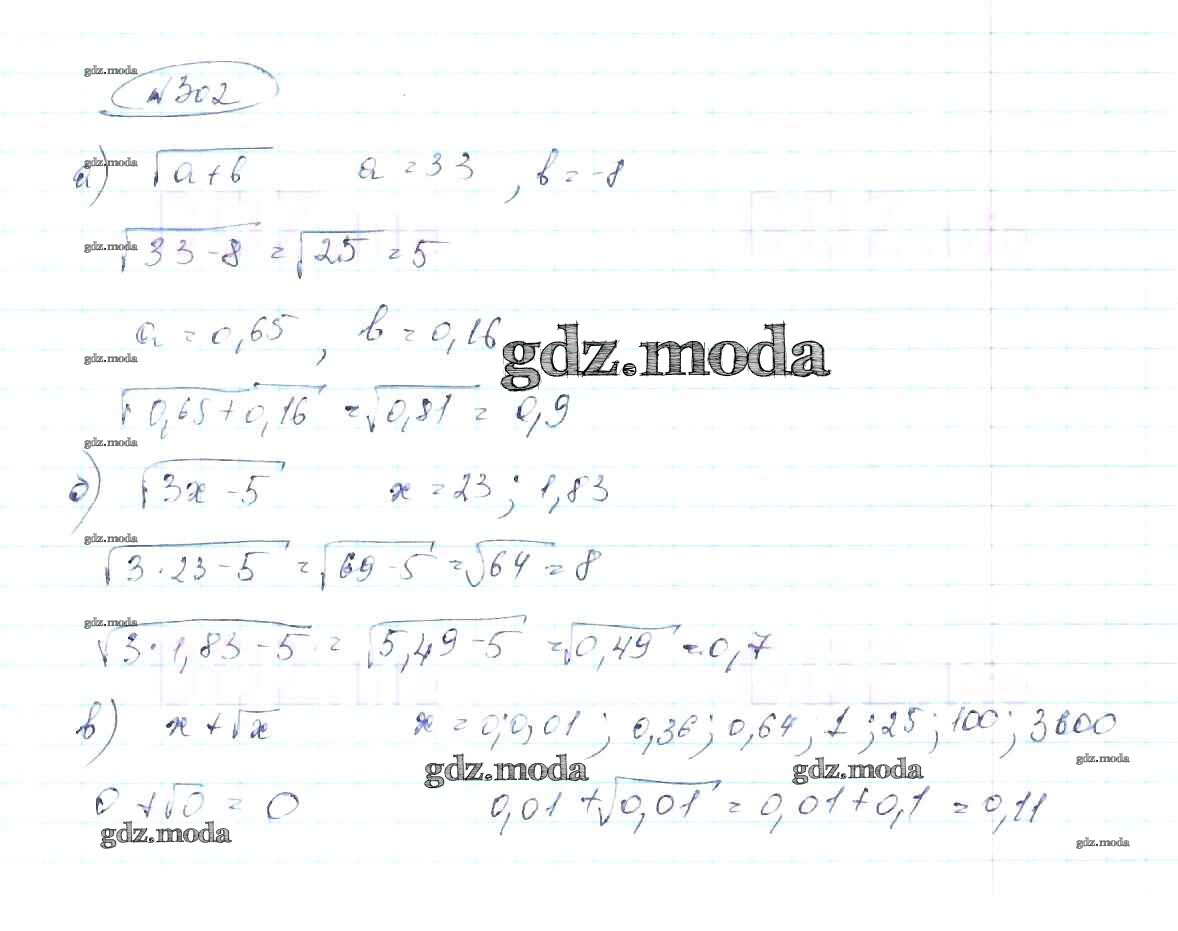 gdz.moda
№302
gdz.moda
а) √(a+b) a = 33, b = -8
gdz.moda
√(33-8) = √25 = 5
a = 0,65, b = 0,16
gdz.moda
gdz.moda
√(0,65+0,16) = √0,81 = 0,9
gdz.moda
б) √(3x-5) x = 23; 1,83
gdz.moda
√(3·23-5) = √(69-5) = √64 = 8
gdz.moda
√(3·1,83-5) = √(5,49-5) = √0,49 = 0,7
в) x+√x x = 0; 0,01; 0,36; 0,64; 1; 25; 100; 3600
gdz.moda gdz.moda gdz.moda
0+√0 = 0 0,01+√0,01 = 0,01+0,1 = 0,11
gdz.moda gdz.moda